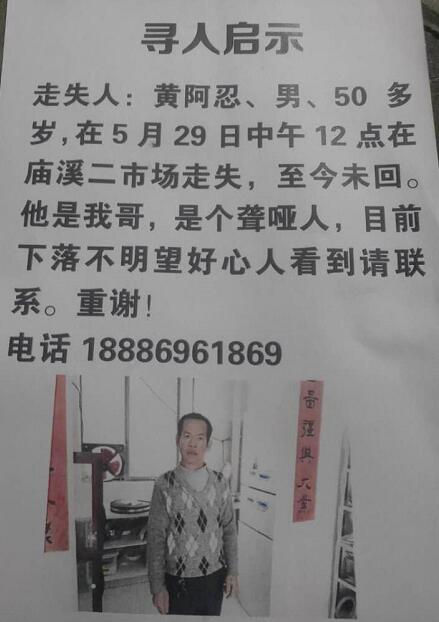 寻人启示
走失人：黄阿忍、男、50 多
岁,在 5 月 29 日中午 12 点在
庙溪二市场走失，至今未回。
他是我哥，是个聋哑人，目前
下落不明望好心人看到请联
系。重谢!
电话 18886961869
大業